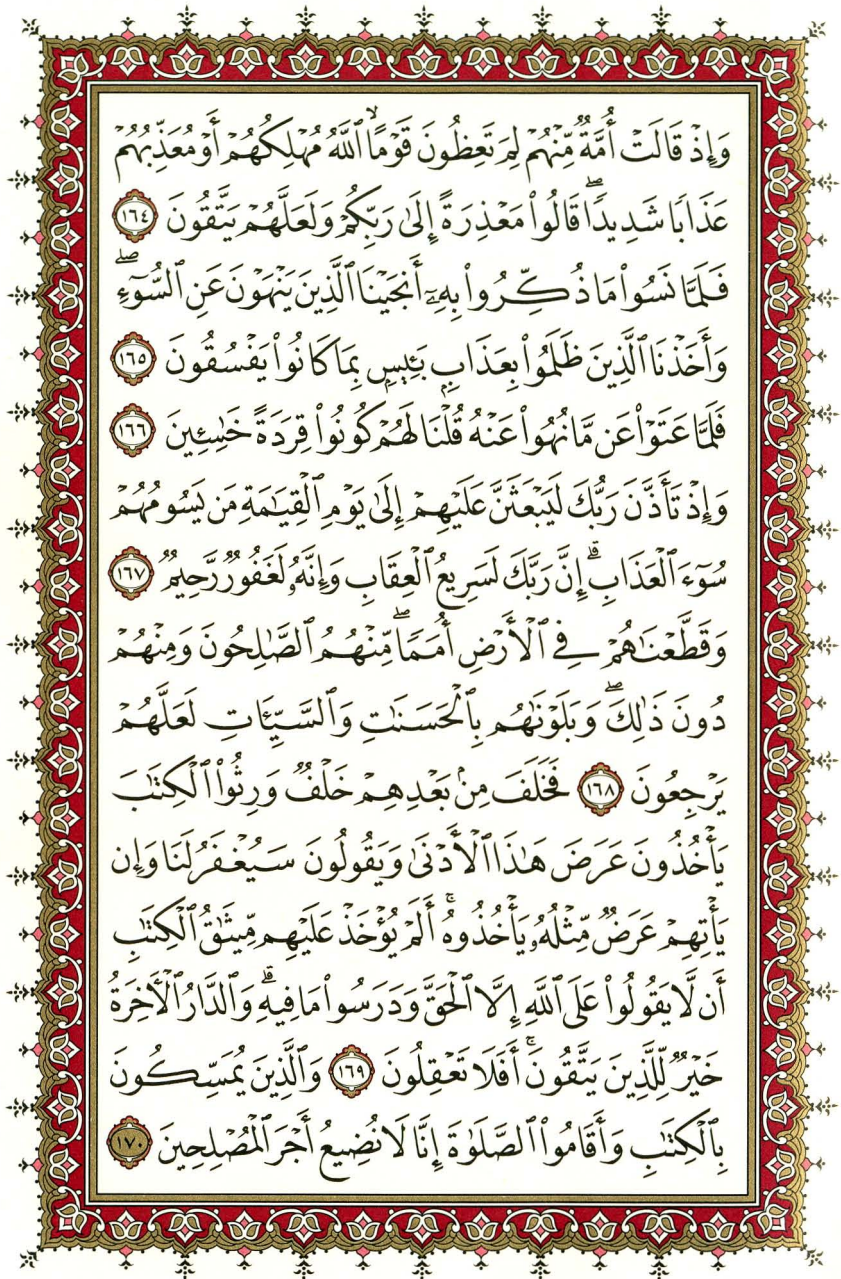 وَإِذۡ قَالَتۡ أُمَّةٞ مِّنۡهُمۡ لِمَ تَعِظُونَ قَوۡمًا ۙ ٱللَّهُ مُهۡلِكُهُمۡ أَوۡ مُعَذِّبُهُمۡ
عَذَابٗا شَدِيدٗاۖ قَالُواْ مَعۡذِرَةً إِلَىٰ رَبِّكُمۡ وَلَعَلَّهُمۡ يَتَّقُونَ ١٦٤
فَلَمَّا نَسُواْ مَا ذُكِّرُواْ بِهِۦٓ أَنجَيۡنَا ٱلَّذِينَ يَنۡهَوۡنَ عَنِ ٱلسُّوٓءِۖ
وَأَخَذۡنَا ٱلَّذِينَ ظَلَمُواْ بِعَذَابِۭ بَـِٔيسِۭ بِمَا كَانُواْ يَفۡسُقُونَ ١٦٥
فَلَمَّا عَتَوۡاْ عَن مَّا نُهُواْ عَنۡهُ قُلۡنَا لَهُمۡ كُونُواْ قِرَدَةً خَٰسِـِٔينَ ١٦٦
وَإِذۡ تَأَذَّنَ رَبُّكَ لَيَبۡعَثَنَّ عَلَيۡهِمۡ إِلَىٰ يَوۡمِ ٱلۡقِيَٰمَةِ مَن يَسُومُهُمۡ
سُوٓءَ ٱلۡعَذَابِۗ إِنَّ رَبَّكَ لَسَرِيعُ ٱلۡعِقَابِ وَإِنَّهُۥ لَغَفُورٞ رَّحِيمٞ ١٦٧
وَقَطَّعۡنَٰهُمۡ فِي ٱلۡأَرۡضِ أُمَمٗاۖ مِّنۡهُمُ ٱلصَّٰلِحُونَ وَمِنۡهُمۡ
دُونَ ذَٰلِكَۖ وَبَلَوۡنَٰهُم بِٱلۡحَسَنَٰتِ وَٱلسَّيِّـَٔاتِ لَعَلَّهُمۡ
يَرۡجِعُونَ ١٦٨ فَخَلَفَ مِنۢ بَعۡدِهِمۡ خَلۡفٞ وَرِثُواْ ٱلۡكِتَٰبَ
يَأۡخُذُونَ عَرَضَ هَٰذَا ٱلۡأَدۡنَىٰ وَيَقُولُونَ سَيُغۡفَرُ لَنَا وَإِن
يَأۡتِهِمۡ عَرَضٞ مِّثۡلُهُۥ يَأۡخُذُوهُۚ أَلَمۡ يُؤۡخَذۡ عَلَيۡهِم مِّيثَٰقُ ٱلۡكِتَٰبِ
أَن لَّا يَقُولُواْ عَلَى ٱللَّهِ إِلَّا ٱلۡحَقَّ وَدَرَسُواْ مَا فِيهِۗ وَٱلدَّارُ ٱلۡأٓخِرَةُ
خَيۡرٞ لِّلَّذِينَ يَتَّقُونَۚ أَفَلَا تَعۡقِلُونَ ١٦٩ وَٱلَّذِينَ يُمَسِّكُونَ
بِٱلۡكِتَٰبِ وَأَقَامُواْ ٱلصَّلَوٰةَ إِنَّا لَا نُضِيعُ أَجۡرَ ٱلۡمُصۡلِحِينَ ١٧٠